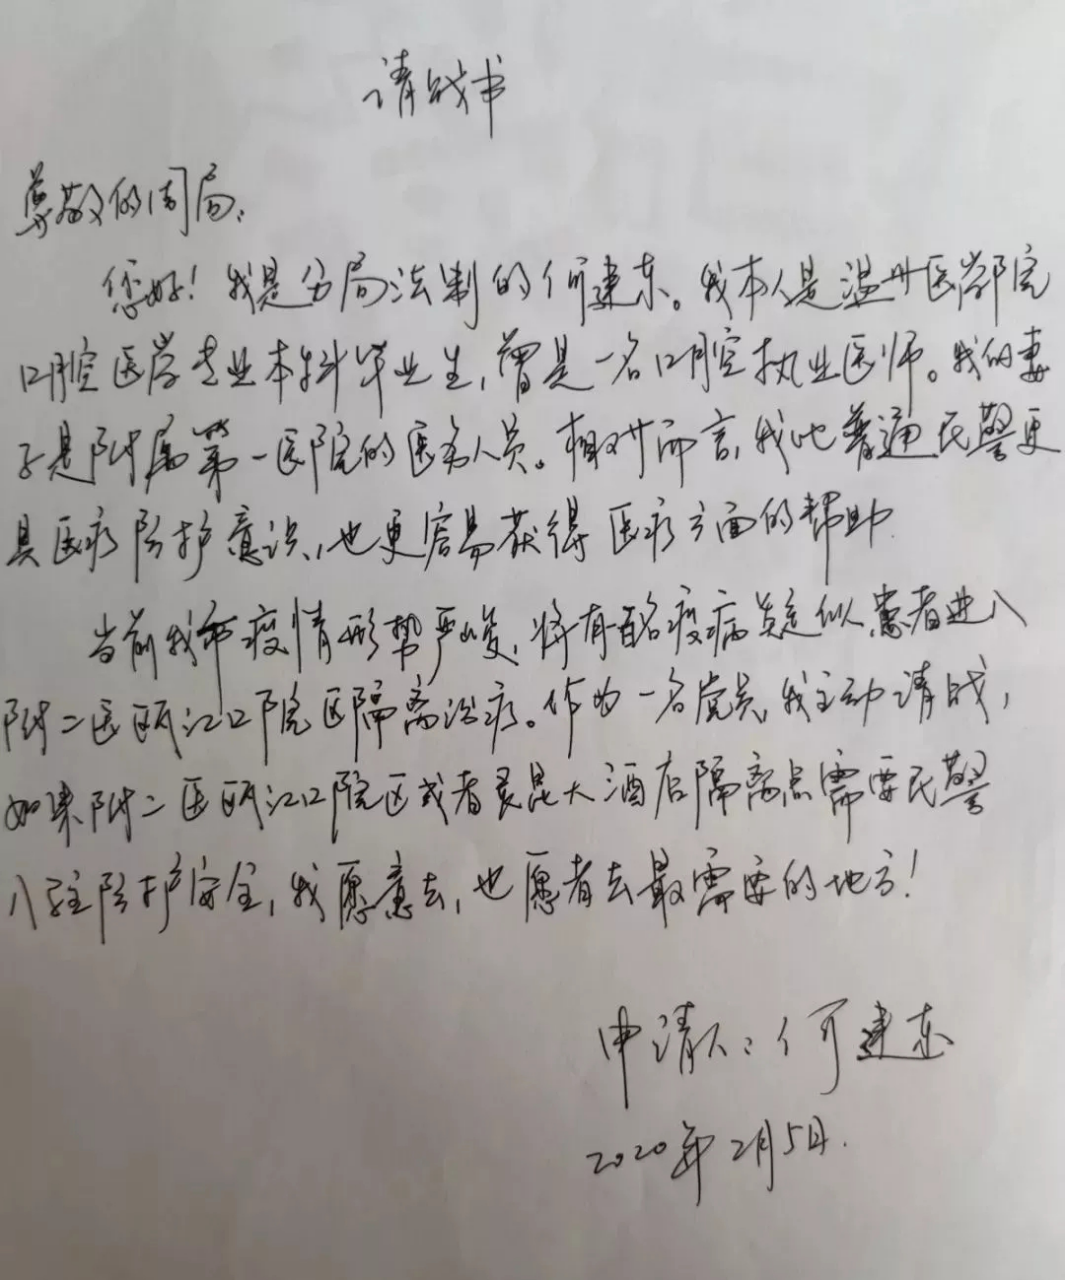 请战书
尊敬的周局:
您好!我是分局法制的何建东。我本人是温州医学院
口腔医学专业本科毕业生,曾是一名口腔执业医师。我的妻
子是附属第一医院的医务人员。相对而言,我比普通民警更
具医疗防护意识,也更容易获得医疗方面的帮助.
当前我市疫情形势严峻,将有百名疫病疑似患者进入
附二医瓯江口院区隔离治疗。作为一名党员,我主动请战,
如果附二医瓯江口院区或者灵昆大酒店隔离点需要民警
入驻防护安全,我愿意去,也愿者去最需要的地方!
申请人:何建东
2020年2月5日.